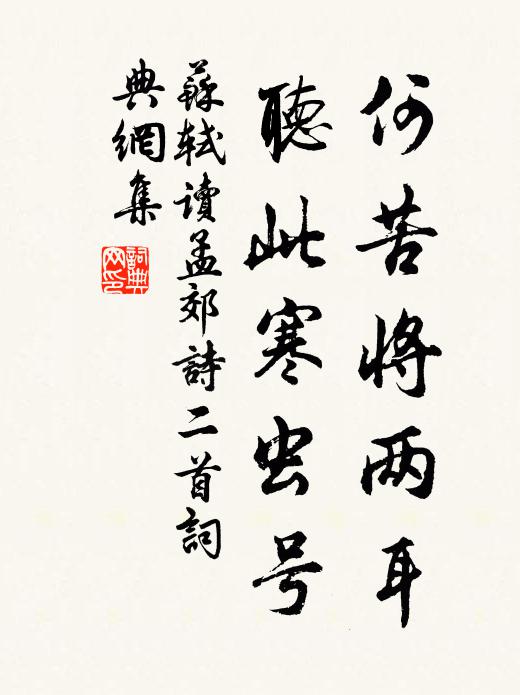 何苦将两耳
聴此寒虫号
蘇軾讀孟郊詩二首詞
典網集
詞典
网印